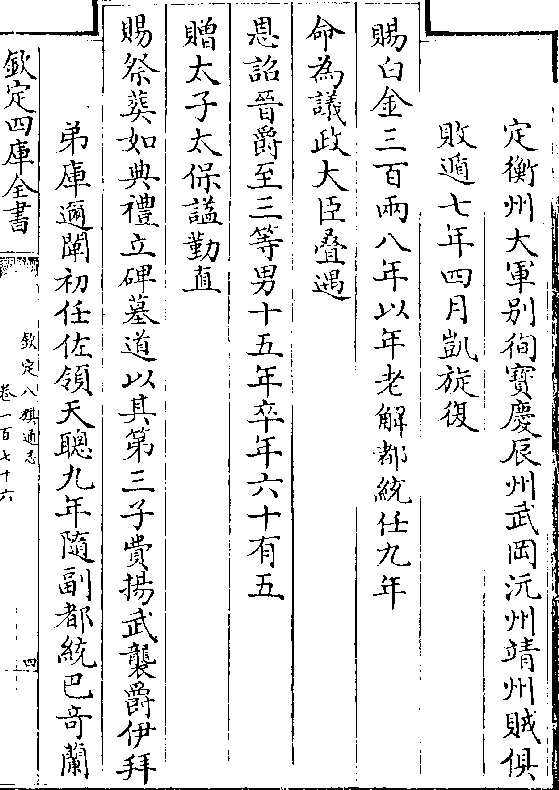 定衡州大軍别徇寶慶辰州武岡沅州靖州賊俱
敗遁七年四月凱旋復
賜白金三百兩八年以年老解都統任九年
命為議政大臣疊遇
恩詔晉爵至三等男十五年卒年六十有五
贈太子太保諡勤直
賜祭葬如典禮立碑墓道以其第三子費揚武襲爵伊拜
弟庫邇闡初任佐領天聰九年隨副都統巴竒蘭
欽定四庫全書
欽定八旗通志
卷一百七十六
四